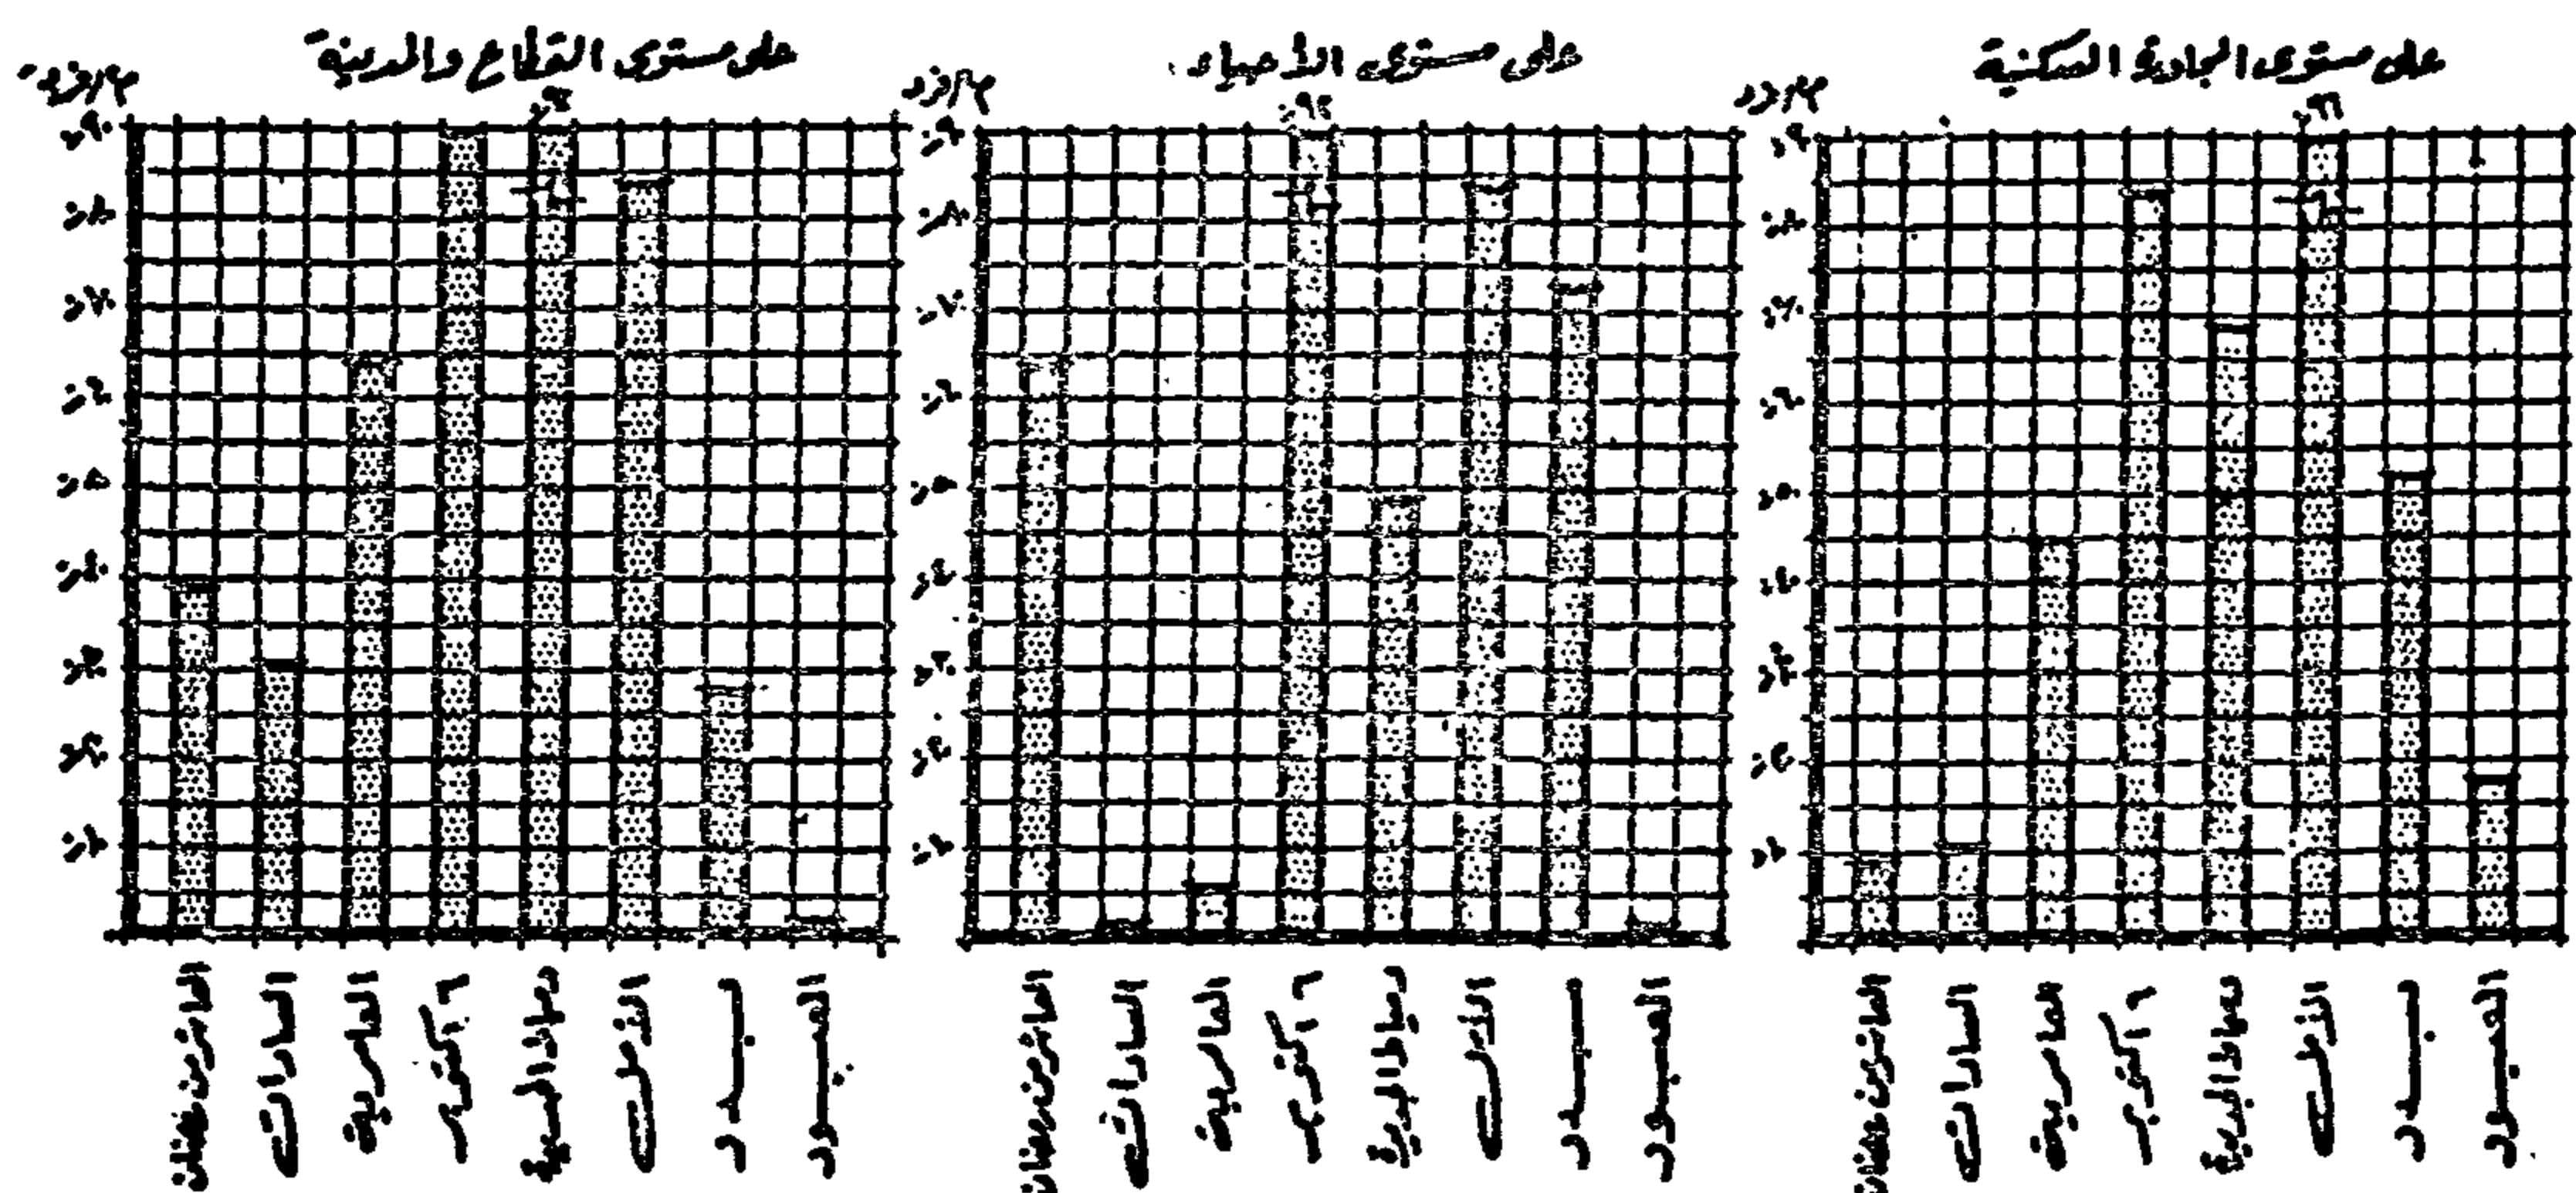 على مستوى المجاورة السكنية
م٢/فرد
٩٦ر
٩٠ر
٨٠ر
٧٠ر
٦٠ر
٥٠ر
٤٠ر
٣٠ر
٢٠ر
١٠ر
العاشر من رمضان
السادات
العامرية
٦ أكتوبر
دمياط الجديدة
الأمل
بدر
العبور
على مستوى الأحياء
م٢/فرد
٩٠ر
٨٠ر
٧٠ر
٦٠ر
٥٠ر
٤٠ر
٣٠ر
٢٠ر
١٠ر
العاشر من رمضان
السادات
العامرية
٦ أكتوبر
دمياط الجديدة
الأمل
بدر
العبور
على مستوى القطاع والمدينة
م٢/فرد
٩٠ر
٨٠ر
٧٠ر
٦٠ر
٥٠ر
٤٠ر
٣٠ر
٢٠ر
١٠ر
العاشر من رمضان
السادات
العامرية
٦ أكتوبر
دمياط الجديدة
الأمل
بدر
العبور